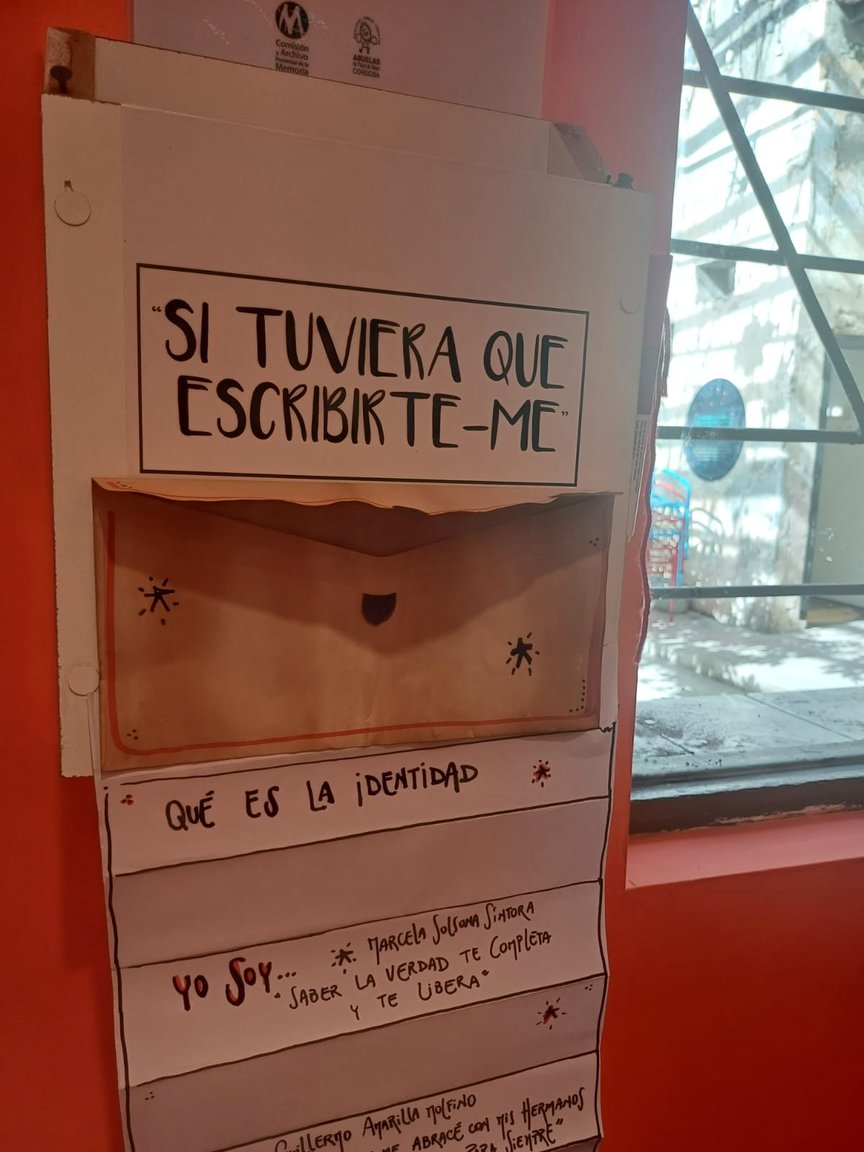 Comisión
y Archivo
Provincial de la
Memoria
ABUELAS
CÓRDOBA
"SI TUVIERA QUE
ESCRIBIRTE-ME"
QUÉ ES LA iDENTiDAD
YO SOY... MARCELA SOLSONA SÍNTORA
"SABER LA VERDAD TE COMPLETA
Y TE LIBERA"
GUILLERMO AMARILLA MOLFINO
ME ABRACÉ CON MIS HERMANOS
PARA SIEMPRE"